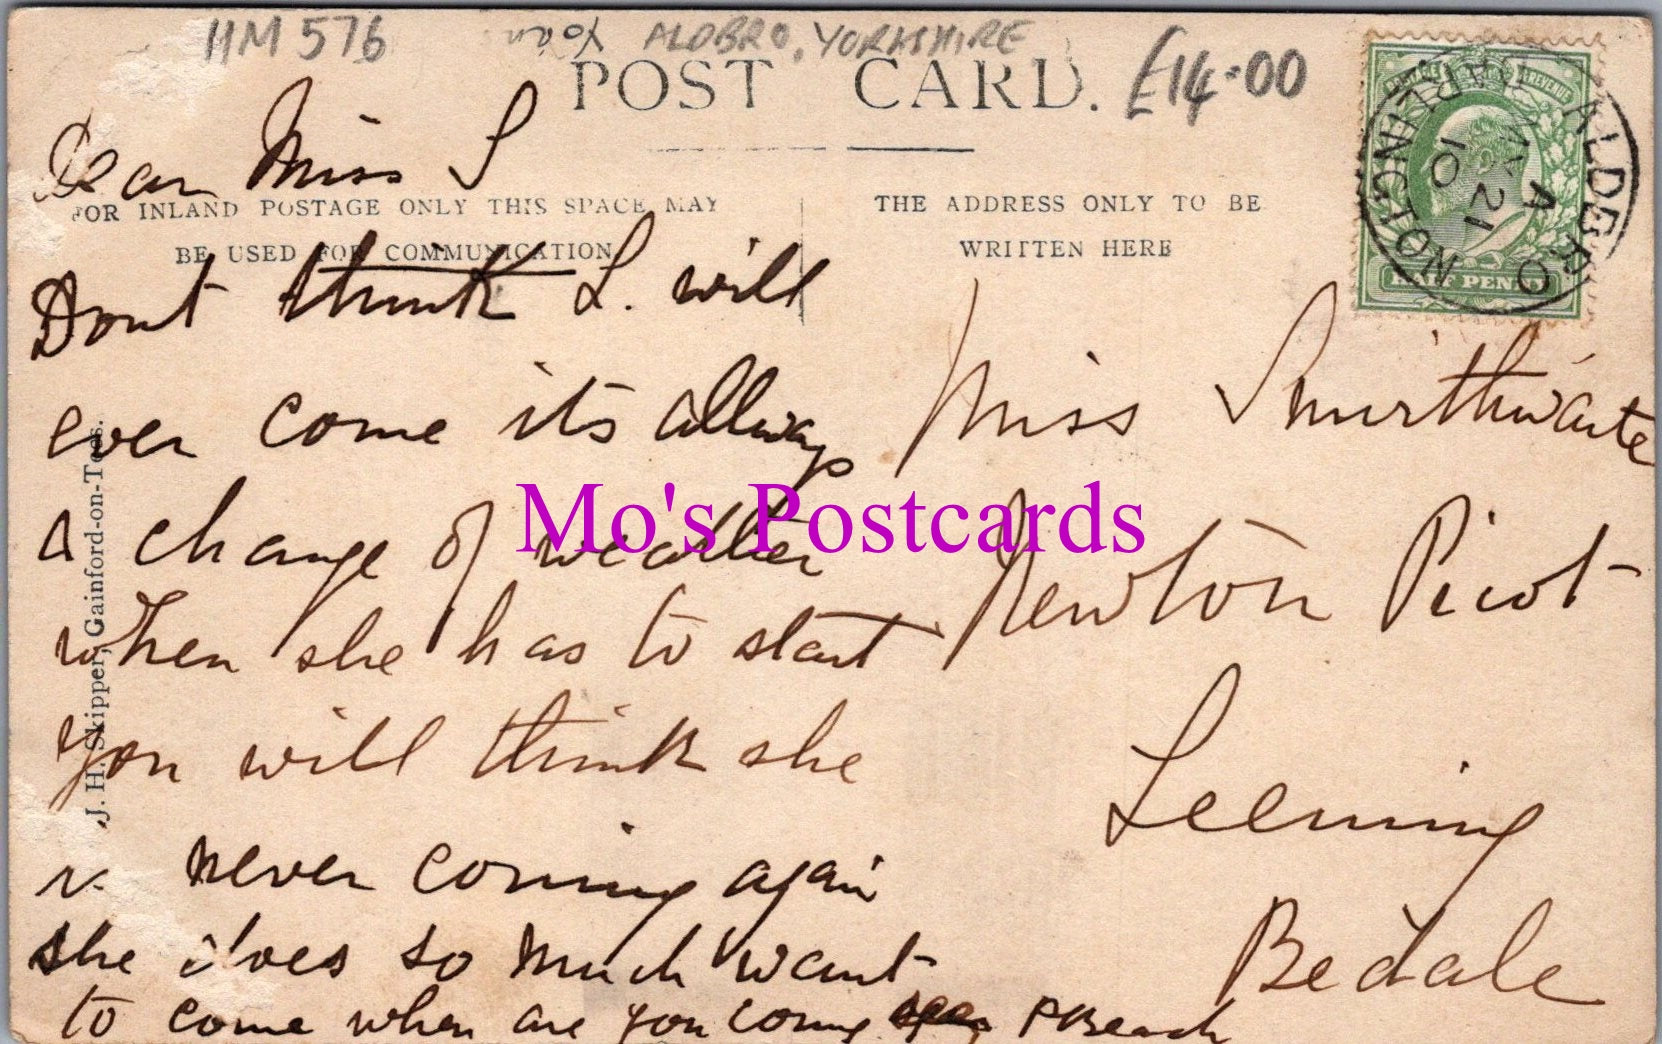 HM 576
ALDBRO, YORKSHIRE
£14.00
POST CARD.
FOR INLAND POSTAGE ONLY THIS SPACE MAY
BE USED FOR COMMUNICATION
THE ADDRESS ONLY TO BE
WRITTEN HERE
POSTAGE REVENUE
HALF PENNY
ALDBRO
DARLINGTON
A
MY 21
10
Dear Miss S
Dont think L. will
ever come its allways
a change of weather
when she has to start
you will think she
is never coming again
she does so much want
to come when are you coming
P Beach
Miss Smirthwaite
Newton Picot
Leeming
Bedale
J. H. Skipper, Gainford-on-Tees.
Mo's Postcards